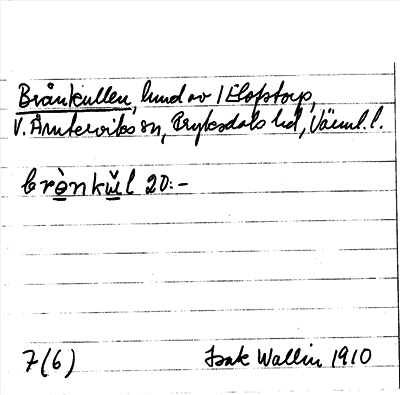 Brånkullen, hmd av 1 Elofstorp,
V. Ämterviks sn, Fryksdals hd, Värml. l.
brònkŭl 20:-
7(6) Isak Wallin 1910